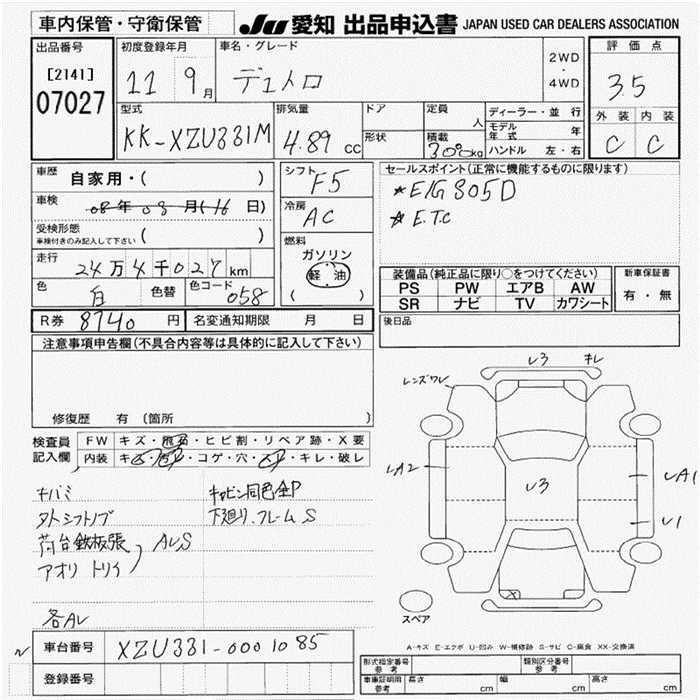 車内保管・守衛保管
JU 愛知 出品申込書 JAPAN USED CAR DEALERS ASSOCIATION
出品番号
[2141]
07027
初度登録年月
11 9月
車名・グレード
デュトロ
2WD
・
4WD
評価点
35
外装 内装
C C
型式
KK-XZU331M
排気量
4.89 CC
ドア
形状
定員
人
積載
300kg
ディーラー・並行
モデル年式 年
ハンドル 左・右
車歴
自家用・( )
車検
08年08月(16日)
受検形態
車検付きのみ記入して下さい ( )
走行
24万4千027km
色
白
色替
色コード
058
シフト
F5
冷房
AC
燃料
ガソリン
軽油
( )
セールスポイント(正常に機能するものに限ります)
*E/G 305D
*E.T.C
装備品(純正品に限り○をつけてください)
PS PW エアB AW
SR ナビ TV カワシート
新車保証書
有・無
R券 8740 円
名変通知期限 月 日
後日品
注意事項申告欄(不具合内容等は具体的に記入して下さい)
修復歴 有 (箇所 )
検査員記入欄
FW キズ・飛石・ヒビ割・リペア跡・X要
内装 キズ・汚れ・コゲ・穴・スレ・キレ・破レ
キバミ
タトシフトノブ
荷台鉄板張
アオリ トリイ
AU,S
各AU
キャビン同色全P
下廻り、フレームS
U3 キレ
レンズワレ
UA2
U3
UA1
U1
X
スペア
A-キズ E-エクボ U-凹み W-補修跡 S-サビ C-腐食 XX-交換済
車台番号
XZU331-0001085
登録番号
形式指定番号
参考
類別区分番号
参考
車庫証明用
参考
長さ cm
幅 cm
高さ cm